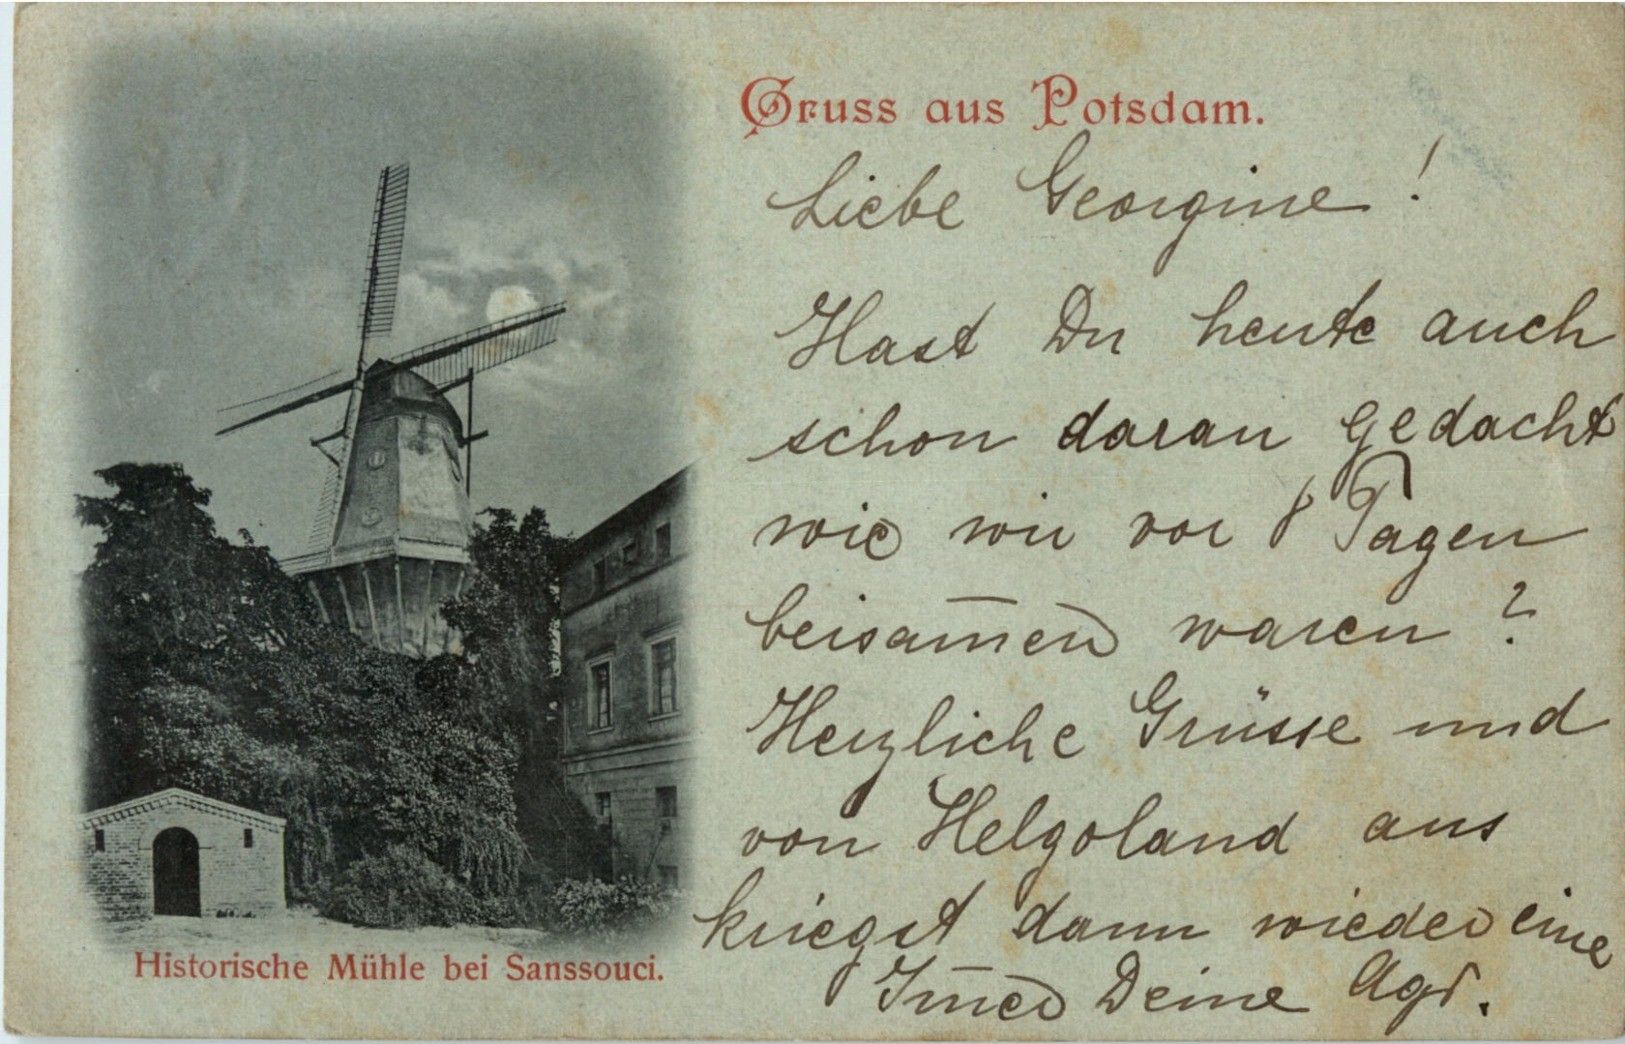 Gruss aus Potsdam.
Liebe Georgine!
Hast Du heute auch
schon daran gedacht
wie wir vor 8 Tagen
beisam̄en waren?
Herzliche Grüsse und
von Helgoland aus
kriegst dann wieder eine
Im̄er Deine Agr.
Historische Mühle bei Sanssouci.